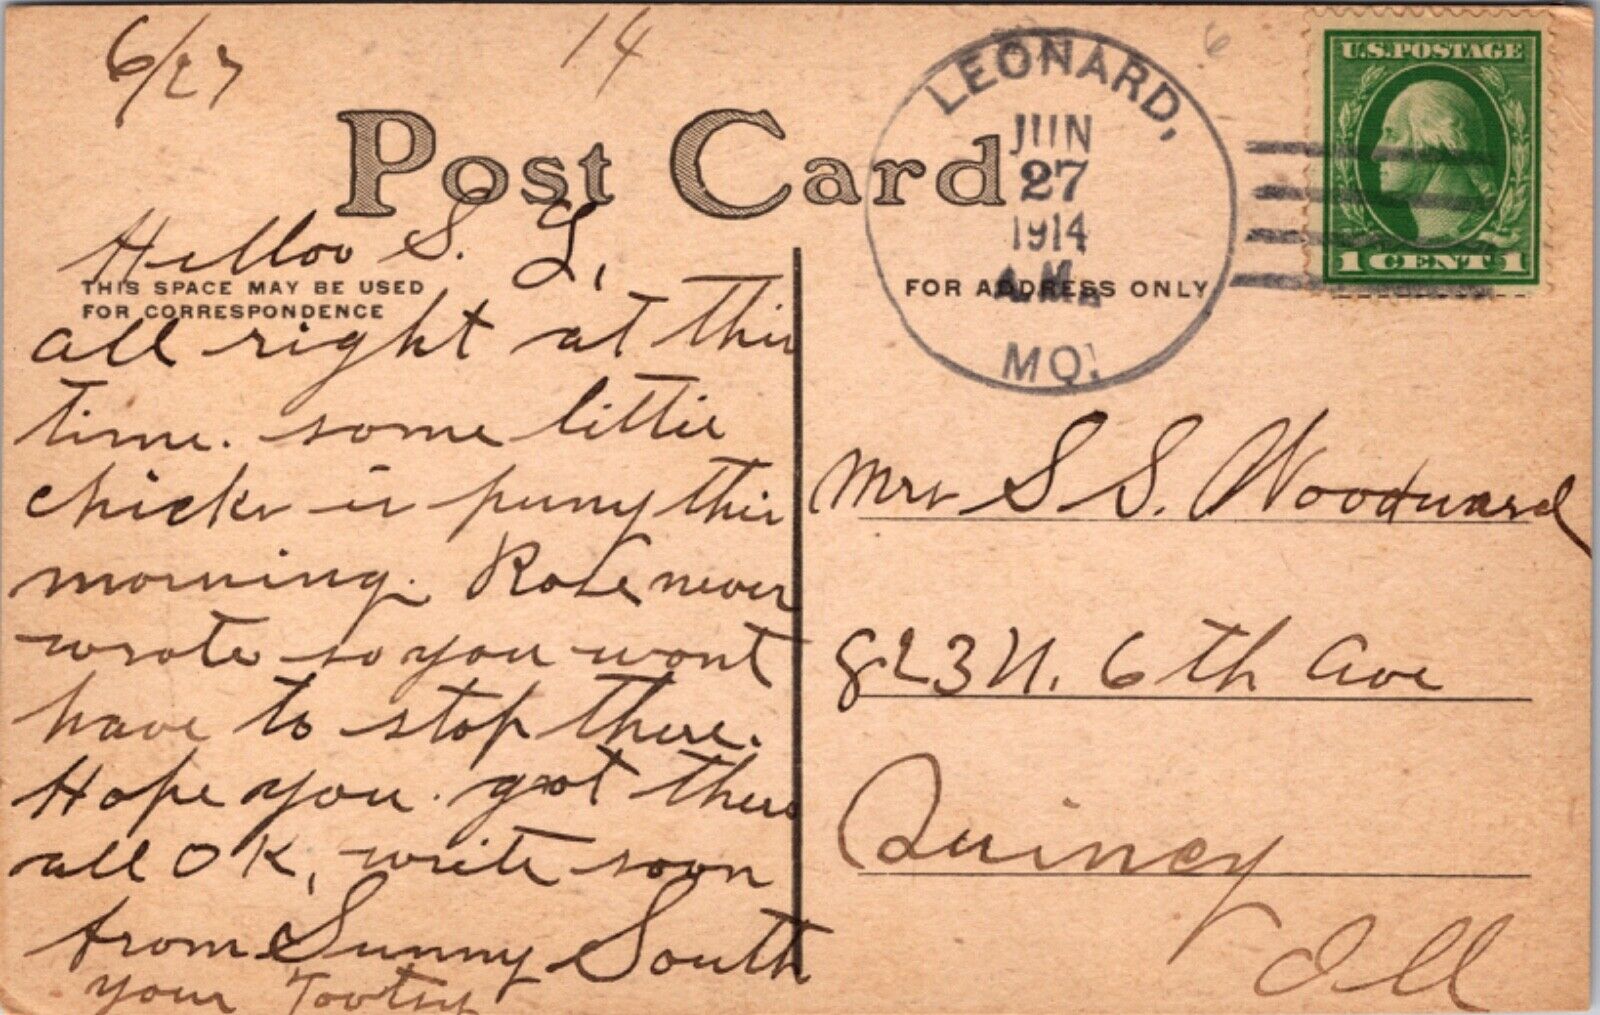 6/27 14
6
U.S.POSTAGE
1 CENT 1
LEONARD,
JUN
27
1914
A.M.
MO.
Post Card
THIS SPACE MAY BE USED
FOR CORRESPONDENCE
FOR ADDRESS ONLY
Helloo S. L,
all right at this
time. some little
chicks is puny this
morning. Rose never
wrote so you wont
have to stop there.
Hope you got there
all OK, write soon
from Sunny South
your Tootsy
Mrs S S. Woodward
823 N. 6th Ave
Quincy
Ill